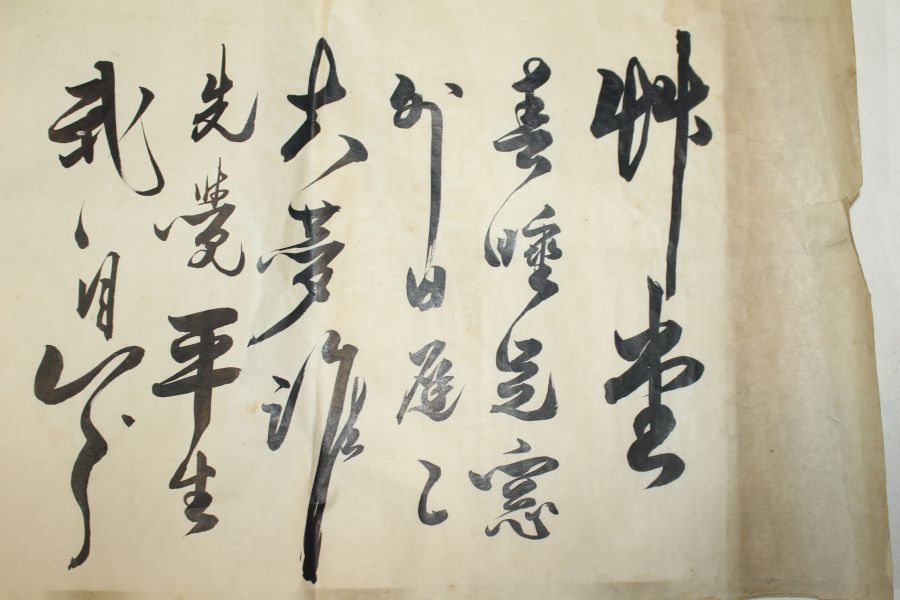 艸堂
春睡足窓
外日遲〻
大夢誰
先覺平生
我自知